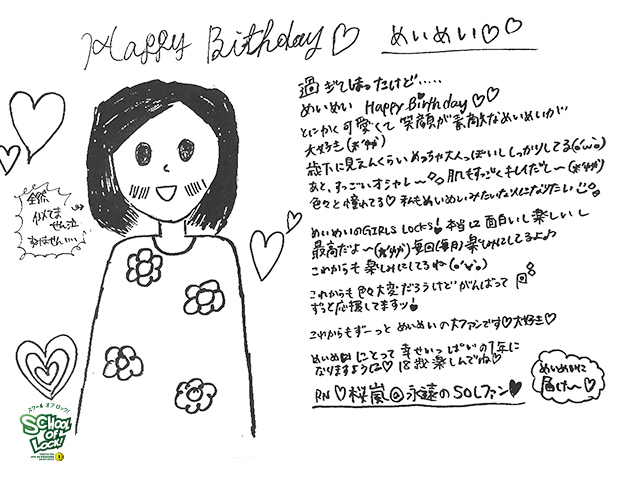 Happy Birthday♡ めいめい♡♡
過ぎてしまったけど.....
めいめい Happy Birthday♡♡
とにかく可愛くて笑顔が素敵なめいめいが
大好き
歳下に見えんくらいめっちゃ大人っぽいししっかりしてる(o'ω'o)
あと、すっごいオシャレ〜 肌もすっごくキレイだし〜
色々と憧れてる♡ 私もめいめいみたいな人になりたい
めいめいのGIRLS LOCKS! 本当に面白いし楽しいし
最高だよ〜 毎回(毎月)楽しみにしてるよ♪
これからも楽しみにしてるね(o'∨'o)
これからも色々大変だろうけどがんばって
ずっと応援してますッ!
これからもずーっと めいめいの大ファンです♡大好き♡
めいめいにとって幸せいっぱいの1年に
なりますように♡ 18歳楽しんでね♡
RN ♡桜嵐@永遠のSOLファン♥
めいめいに
届けー♡
全然
似てま
せん泣
すいません....
スクールオブロック!
SCHOOL
OF
LOCK!